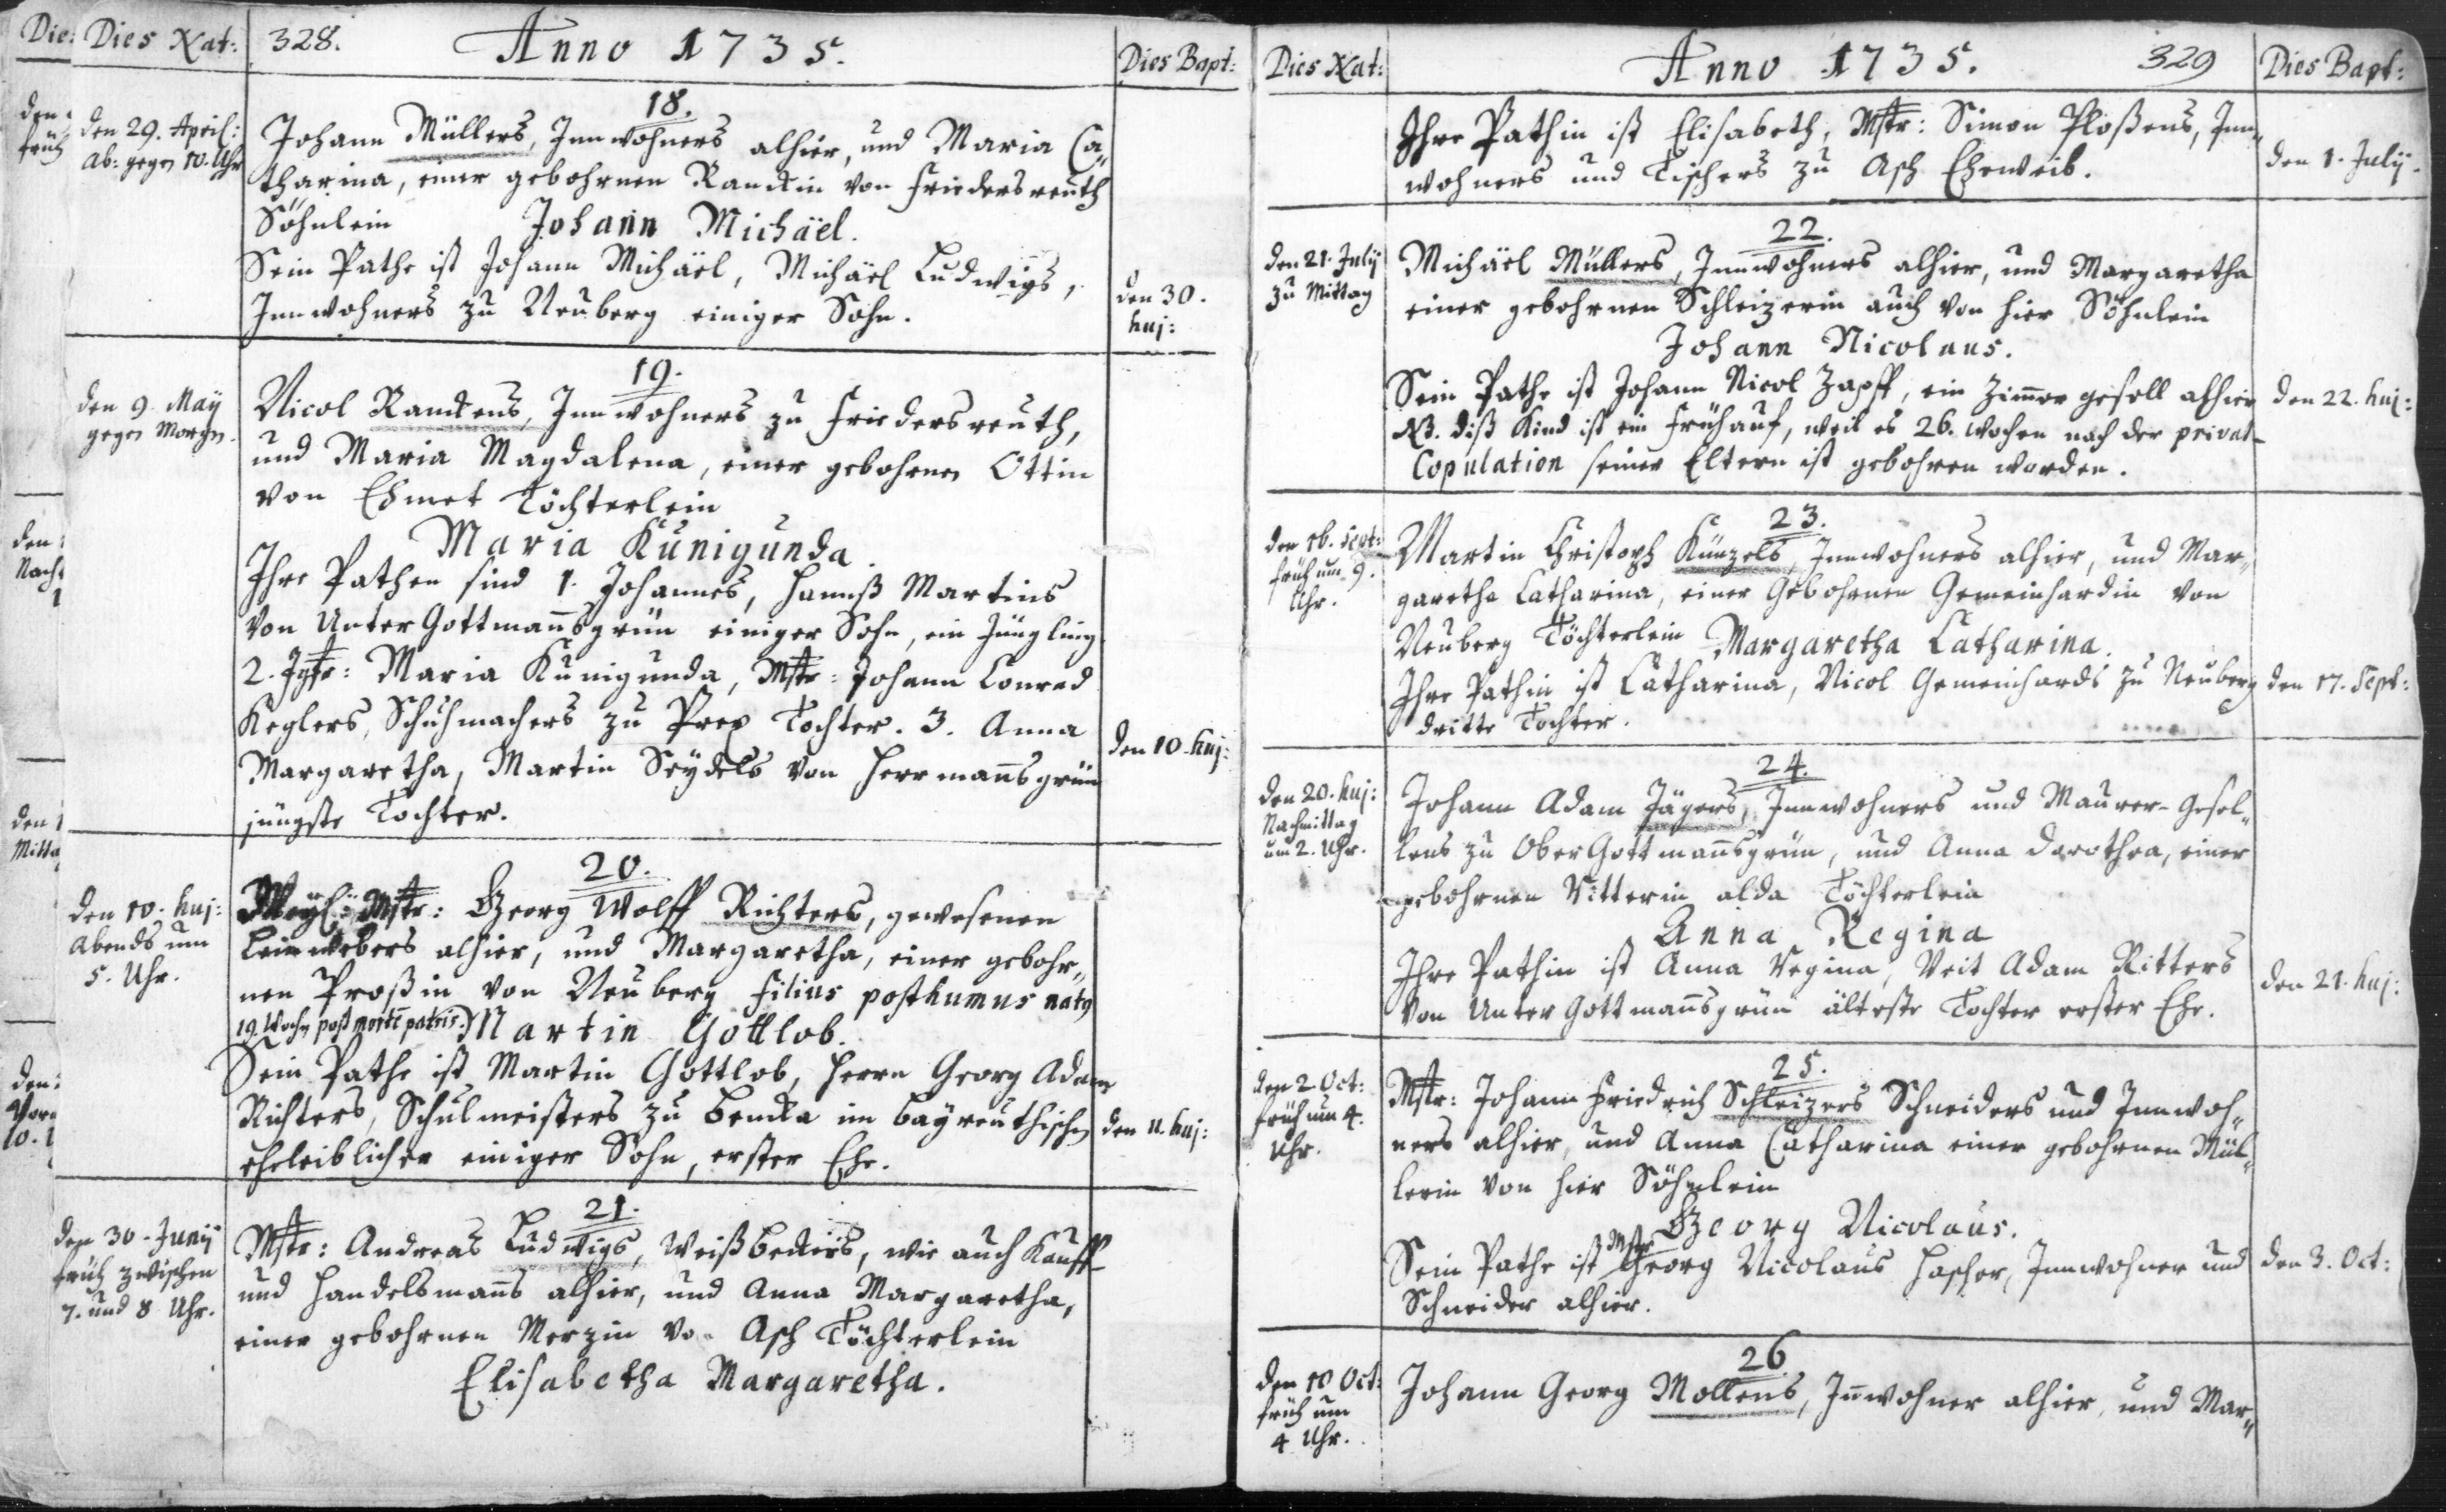 Dies Nat: 328. Anno 1735. Dies Bapt:
18.
den 29. April:
Ab: gegen 10. Uhr
Johann Müllers, Innwohners alhier, und Maria Ca„
tharina, einer gebohrnen Randin von Friedersreuth
Söhnlein Johann Michäel.
Sein Pathe ist Johann Michäel, Michäel Ludwigs,
Innwohners zu Neuberg einiger Sohn.
den 30.
huj:
19.
den 9 Maÿ
gegen Morgen.
Nicol Randens, Innwohners zu Friedersreuth,
und Maria Magdalena, einer gebohrnen Ottin
von Ehmet Töchterlein
Maria Kunigunda.
Ihre Pathen sind 1. Johannes, Hannß Martins
von Unter Gottmannsgrün einiger Sohn, ein Jüngling
2. Jgfr: Maria Kunigunda, Mstr: Johann Conrad
Keglers, Schuhmachers zu Prex Tochter. 3. Anna
Margaretha, Martin Seydels von Herrmannsgrün
jüngste Tochter.
den 10. huj:
20.
den 10. huj:
Abends um
5. Uhr.
Weyl: Mstr: Georg Wolff Richters, gewesenen
Leinwebers alhier, und Margaretha, einer gebohr„
nen Proßin von Neuberg filius posthumus natq
19. Wochen post mortē patris.) Martin Gottlob.
Sein Pathe ist Martin Gottlob, Herrn Georg Adam
Richters, Schulmeisters zu Bemka im Bayreuthischen
eheleiblicher einiger Sohn, erster Ehe.
den 11. huj:
21.
den 30. Junÿ
früh zwischen
7. und 8 Uhr.
Mstr: Andreas Ludwigs, Weißbeckers, wie auch Kauff
und Handelsmanns alhier, und Anna Margaretha,
einer gebohrnen Merzin von Asch Töchterlein
Elisabetha Margaretha.
Dies Nat: Anno 1735. 329 Dies Bapt:
Ihre Pathin ist Elisabeth, Mstr: Simon Ploßens, Inn„
wohners und Tischers zu Asch Eheweib.
den 1. Julÿ.
22.
den 21. Julÿ
zu Mittag
Michäel Müllers, Innwohners alhier, und Margaretha
einer gebohrnen Schleizerin auch von hier Söhnlein
Johann Nicolaus.
Sein Pathe ist Johann Nicol Zapff, ein Zimmer gesell alhier
NB. diß Kind ist ein Frühauf, weil es 26. Wochen nach der privat-
Copulation seiner Eltern ist gebohren worden.
den 22. huj:
23.
den 16. Sept:
früh um 9.
Uhr.
Martin Christoph Künzels, Innwohners alhier, und Mar„
garetha Catharina, einer Gebohrnen Gemeinhardin von
Neuberg Töchterlein Margaretha Catharina.
Ihre Pathin ist Catharina, Nicol Gemeinhards zu Neuberg
dritte Tochter.
den 17. Sept:
24.
den 20. huj:
Nachmittag
um 2. Uhr.
Johann Adam Jägers, Innwohners und Maurer-Gesel„
lens zu Ober Gottmannsgrün, und Anna Dorothea, einer
gebohrnen Ritterin alda Töchterlein
Anna Regina
Ihre Pathin ist Anna Regina, Veit Adam Ritters
von Unter Gottmannsgrün älteste Tochter erster Ehe.
den 21. huj:
25.
den 2 Oct:
früh um 4.
Uhr.
Mstr: Johann Friedrich Schleizers Schneiders und Innwoh„
ners alhier, und Anna Catharina einer gebohrnen Mül„
lerin von hier Söhnlein
Georg Nicolaus.
Sein Pathe ist Mstr Georg Nicolaus Hascher, Innwohner und
Schneider alhier.
den 3. Oct:
26
den 10 Oct:
früh um
4 Uhr.
Johann Georg Mollens, Innwohner alhier, und Mar„